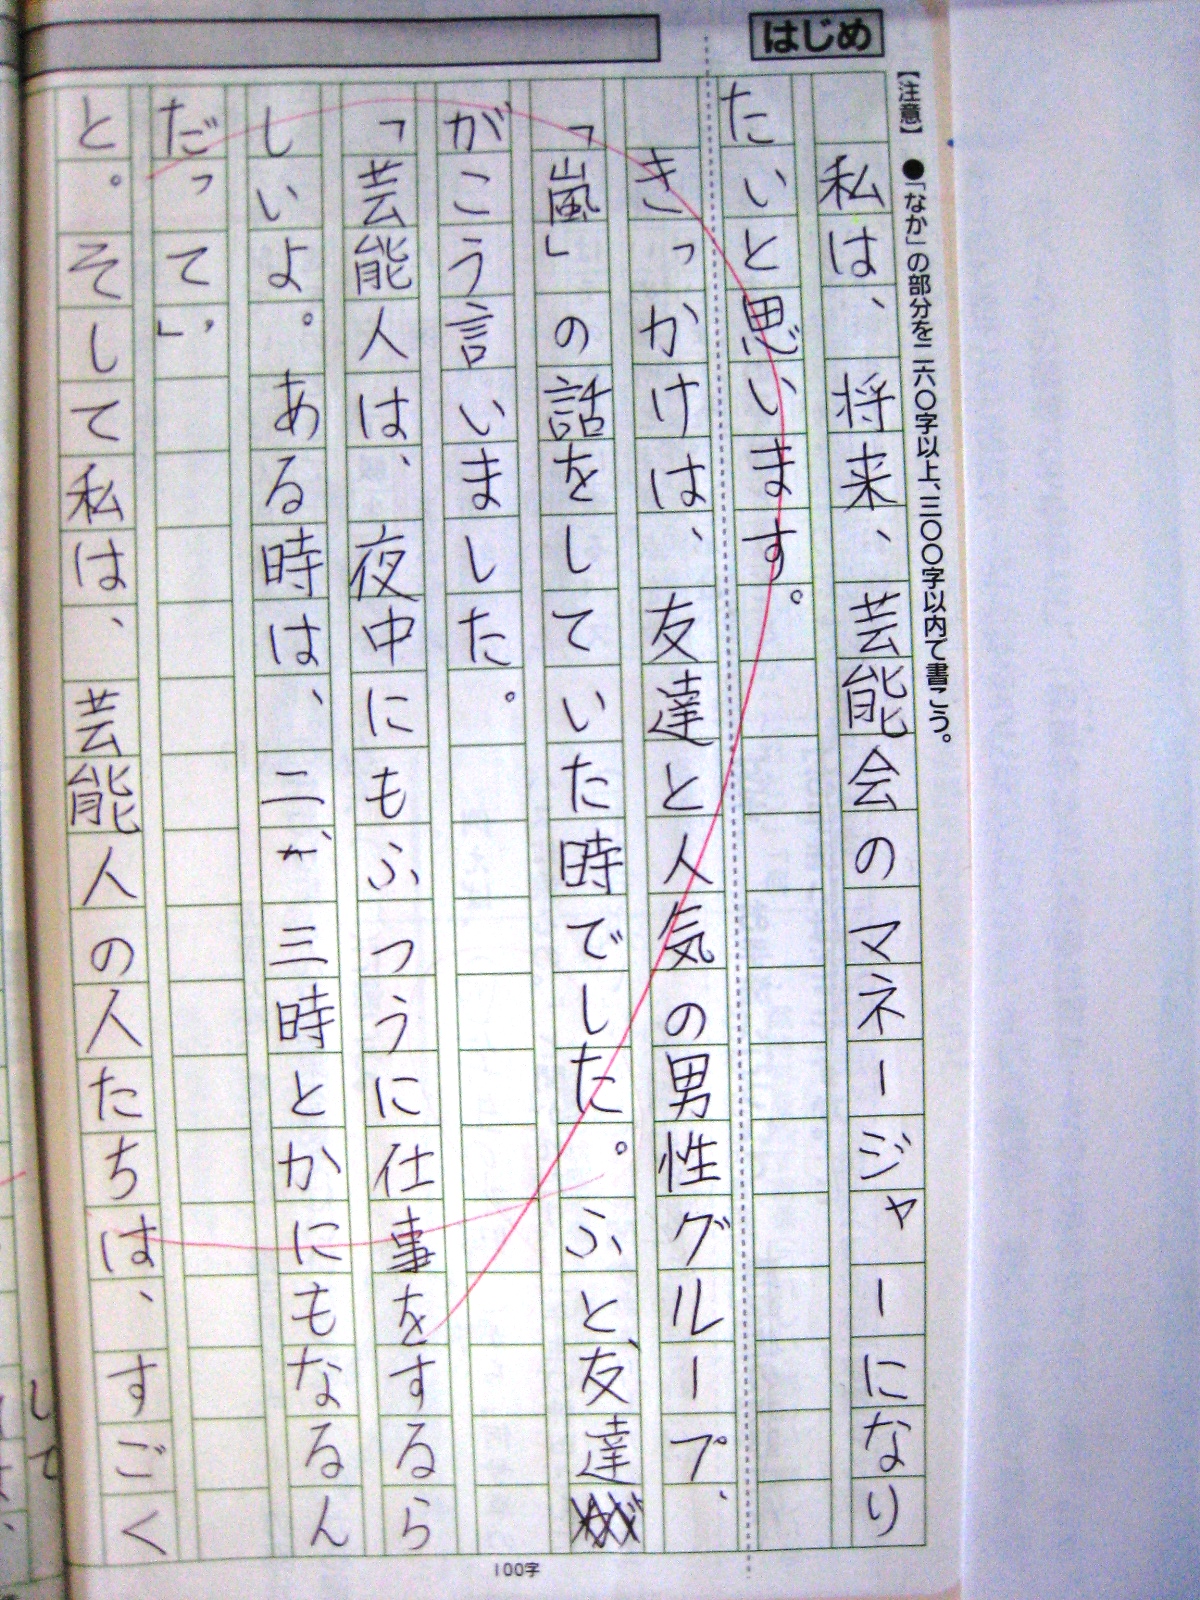 はじめ
【注意】 ●「なか」の部分を二六〇字以上、三〇〇字以内で書こう。
私は、将来、芸能会のマネージャーになり
たいと思います。
きっかけは、友達と人気の男性グループ、
「嵐」の話をしていた時でした。ふと、友達
がこう言いました。
「芸能人は、夜中にもふつうに仕事をするら
しいよ。ある時は、二が三時とかにもなるん
だって」
と。そして私は、芸能人の人たちは、すごく
100字
して